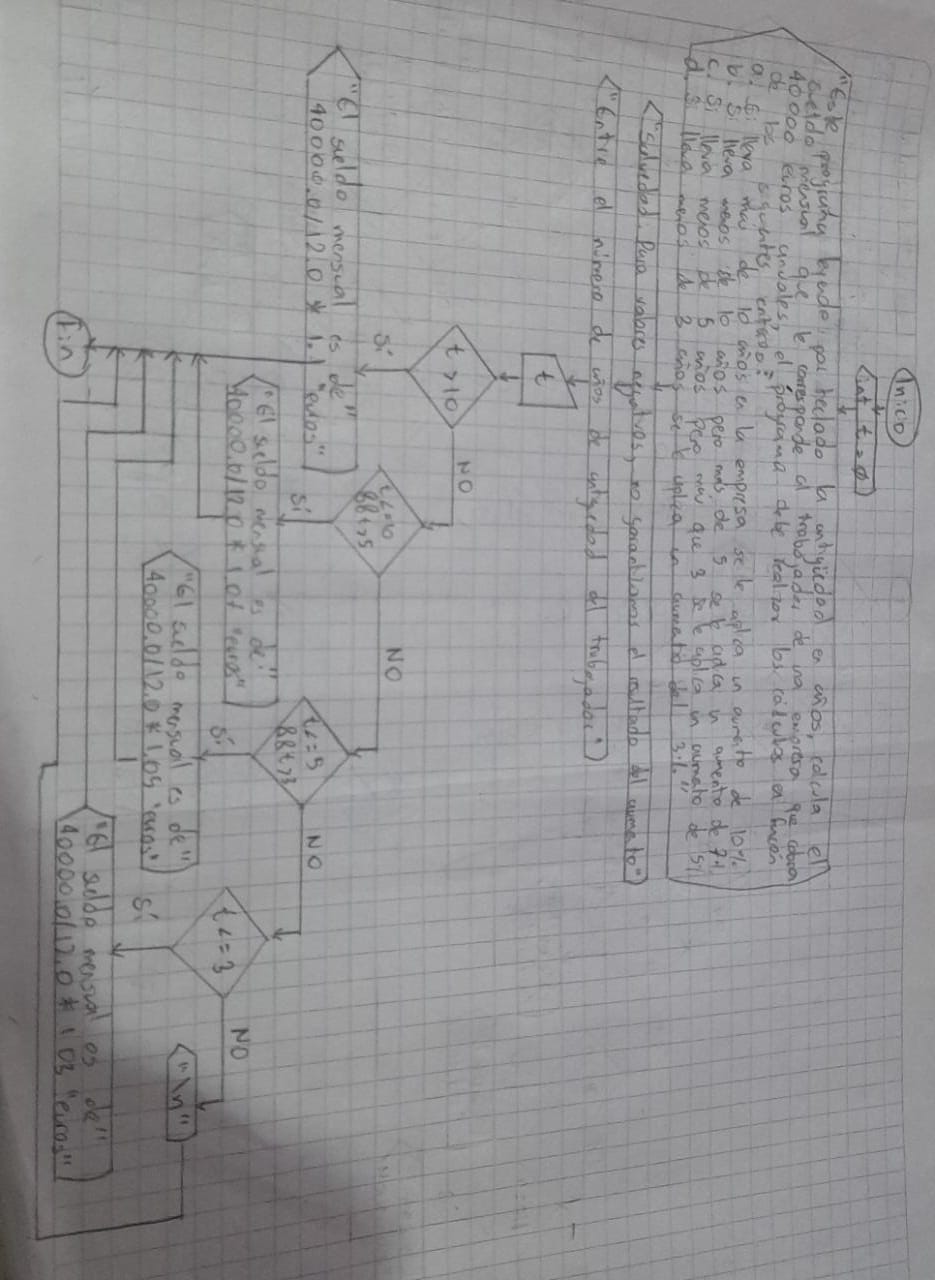 Inicio
int t = 0
"Este programa layendo por teclado la antigüedad en años, calcula el
sueldo mensual que le corresponde al trabajador de una empresa que cobra
40000 euros anuales, el programa debe realizar los cálculos en función
de los siguientes
a. Si lleva mas de 10 años en la empresa se le aplica un aumento de 10%
b. Si lleva menos de 10 años pero más de 5 se le aplica un aumento de 7%
c. Si lleva menos de 5 años pero más que 3 se le aplica un aumento de 5%
d. Si lleva menos de 3 años se le aplica un aumento del 3%."
"Salvedad: Para valores negativos, no garantizamos el resultado del aumento"
"Entre el número de años de antigüedad del trabajador"
t
t > 10
NO
Sí
"El sueldo mensual es de"
40000.0/12.0 * 1.1 "euros"
t <= 10
&& t > 5
NO
Sí
"El sueldo mensual es de"
40000.0/12.0 * 1.07 "euros"
t <= 5
&& t > 3
NO
Sí
"El sueldo mensual es de"
40000.0/12.0 * 1,05 "euros"
t <= 3
NO
Sí
"\n"
"El sueldo mensual es de"
40000.0/12.0 * 1.03 "euros"
Fin